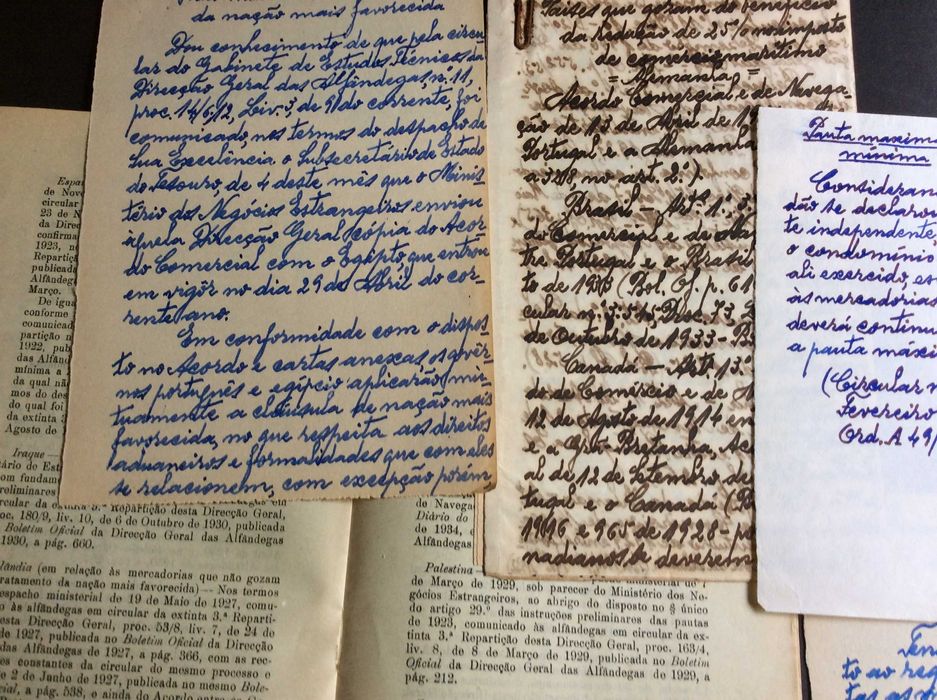 da nação mais favorecida
Dou conhecimento de que pela circu-
lar do Gabinete de Estudos Técnicos da
Direcção Geral das Alfândegas, n.º 11,
proc. 14/6.12, Liv. 3, de 9 do corrente, foi
comunicado, nos termos do despacho de
Sua Excelência o Subsecretário de Estado
do Tesouro, de 4 deste mês que o Minis-
tério dos Negócios Estrangeiros enviou
àquela Direcção Geral cópia do Acor-
do Comercial com o Egipto, que entrou
em vigôr no dia 29 de Abril do cor-
rente ano.
Em conformidade com o dispos-
to no Acordo e cartas anexas, os govêr-
nos português e egípcio aplicarão mú-
tuamente a cláusula de nação mais
favorecida, no que respeita aos direitos
aduaneiros e formalidades que com eles
se relacionem, com excepção porém,
Países que gozam do benefício
da redução de 25% no imposto
de comércio marítimo
= Alemanha =
Acordo Comercial e de Navega-
ção de 13 de Abril de 19
Portugal e a Alemanha
a 328, no art. 2.º)
Brasil — Art.º 1.º,
do Comercial e de Na
tre Portugal e o Brasil
to de 1933 (Bol. Of. p. 61
cular n.º 3.515, Proc. 73,
de Outubro de 1933 - B
Canadá — Art. 13.º
do de Comércio e de
12 de Agosto de 1914 en
e a Grã Bretanha, Ac
al de 12 de Setembro de
tugal e o Canadá (B
1696 e 965 de 1928 - p
nadianos de deverem
Pauta maxima
mínima
Consideran
dão se declarou
te independente,
o condomínio
ali exercido, es
às mercadorias
deverá continu
a pauta máxi
(Circular n
Fevereiro
Ord. A 49/
Espa
de Nov
circular
23 de N
da Direc
confirma
1923, n
Repartiç
publicada
Alfândeg
Março.
De igua
conforme
comunicad
partição n
1922, pub
das Alfând
mínima a
da qual nã
mos do des
do qual foi
da extinta 3
Agosto de
Iraque —
tério de Est
om fundame
reliminares
rcular da extinta 3.ª Repartição desta Direcção Geral,
oc. 180/9, liv. 10, de 6 de Outubro de 1930, publicada
Boletim Oficial da Direcção Geral das Alfândegas
1930, a pág. 660.
lândia (em relação às mercadorias que não gozam
ratamento da nação mais favorecida) — Nos termos
espacho ministerial de 19 de Maio de 1927, comu-
o às alfândegas em circular da extinta 3.ª Reparti-
esta Direcção Geral, proc. 53/8, liv. 7, de 24 de
de 1927, publicada no Boletim Oficial da Direcção
das Alfândegas de 1927, a pág. 366, com as rec-
es constantes da circular do mesmo processo e
e 2 de Junho de 1927, publicada no mesmo Bole-
ial, a pág. 538, e ainda do Acordo entre
de Navega
Diário do
de 1934, e
Alfândegas
Palestina — ministerial de 7
de Março de 1929, sob parecer do Ministério dos Ne-
gócios Estrangeiros, ao abrigo do disposto no § único
do artigo 29.º das instruções preliminares das pautas
de 1923, comunicado às alfândegas em circular da ex-
tinta 3.ª Repartição desta Direcção Geral, proc. 163/4,
liv. 8, de 8 de Março de 1929, publicada no Boletim
Oficial da Direcção Geral das Alfândegas de 1929, a
pág. 212.
to ao reg
tas as d